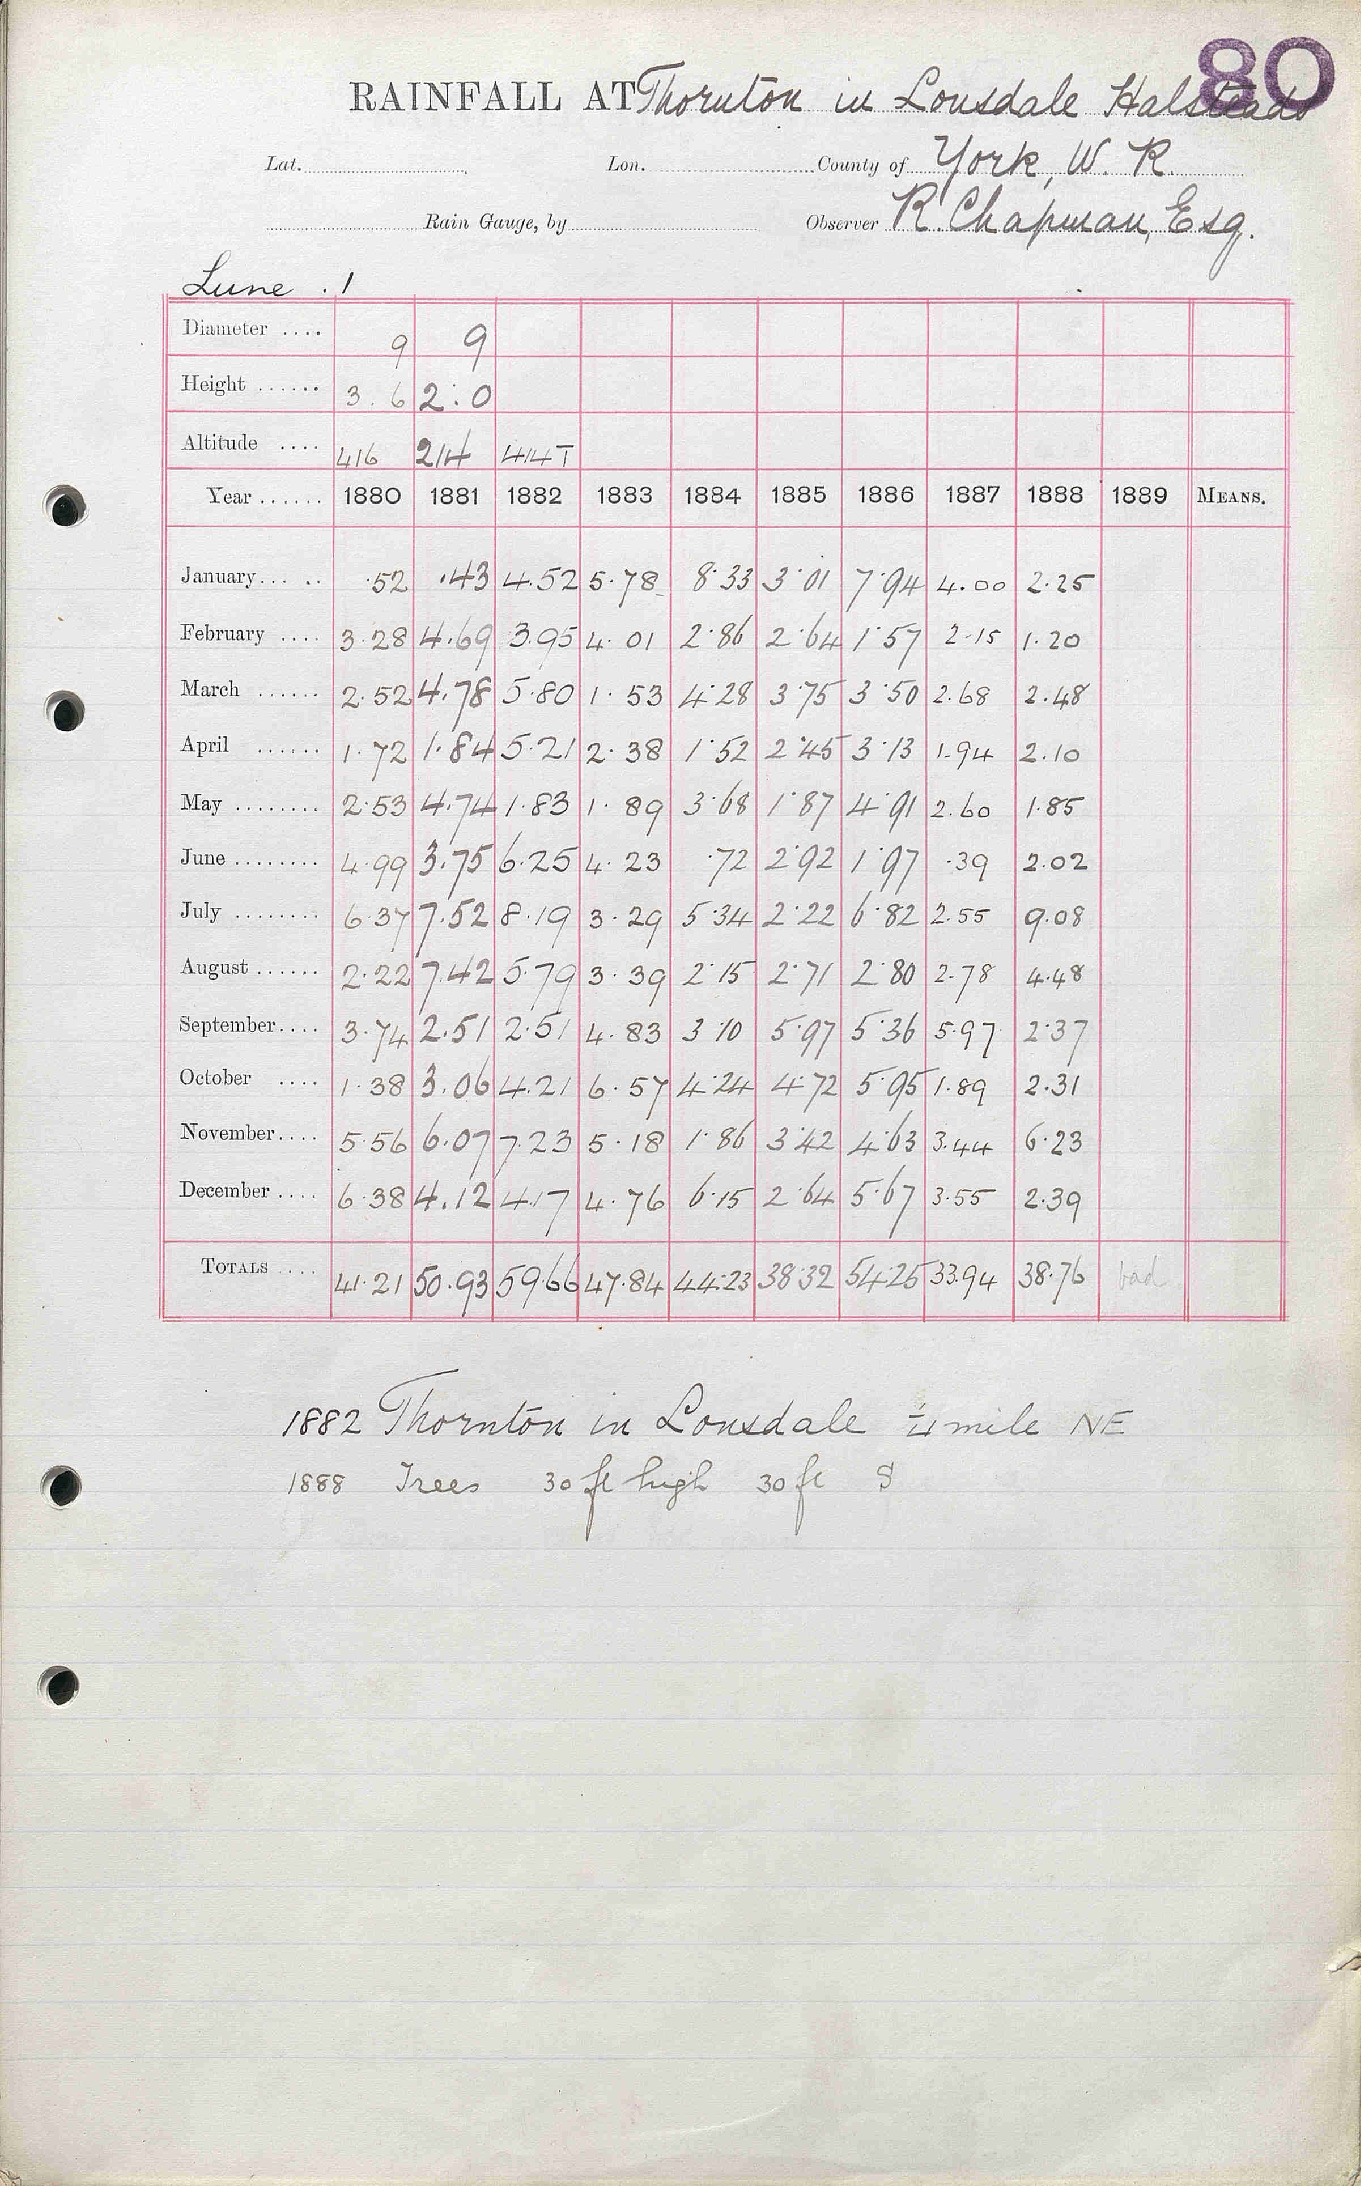 80
RAINFALL AT Thornton in Lonsdale Halsteads
Lat. Lon. County of York, W. R.
Rain Gauge, by Observer R. Chapman, Esq.
Lune . 1
Diameter .... 9 9
Height ...... 3.6 2:0
Altitude .... 416 214 414T
Year ...... 1880 1881 1882 1883 1884 1885 1886 1887 1888 1889 MEANS.
January... .. .52 .43 4.52 5.78 8.33 3.01 7.94 4.00 2.25
February .... 3.28 4.69 3.95 4.01 2.86 2.64 1.57 2.15 1.20
March ...... 2.52 4.78 5.80 1.53 4.28 3.75 3.50 2.68 2.48
April ...... 1.72 1.84 5.21 2.38 1.52 2.45 3.13 1.94 2.10
May ........ 2.53 4.74 1.83 1.89 3.68 1.87 4.91 2.60 1.85
June ........ 4.99 3.75 6.25 4.23 .72 2.92 1.97 .39 2.02
July ........ 6.37 7.52 8.19 3.29 5.34 2.22 6.82 2.55 9.08
August ...... 2.22 7.42 5.79 3.39 2.15 2.71 2.80 2.78 4.48
September.... 3.74 2.51 2.51 4.83 3.10 5.97 5.36 5.97 2.37
October .... 1.38 3.06 4.21 6.57 4.24 4.72 5.95 1.89 2.31
November.... 5.56 6.07 7.23 5.18 1.86 3.42 4.63 3.44 6.23
December .... 6.38 4.12 4.17 4.76 6.15 2.64 5.67 3.55 2.39
TOTALS .... 41.21 50.93 59.66 47.84 44.23 38.32 54.25 33.94 38.76 bad
1882 Thornton in Lonsdale ¼ mile NE
1888 Trees 30 ft high 30 ft S